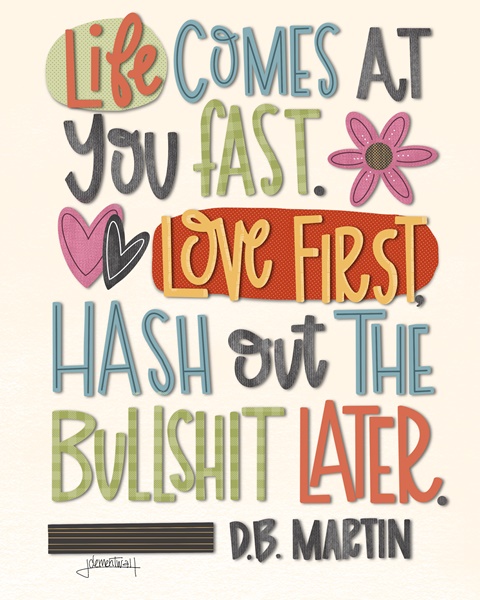 Life COMES AT
You FAST.
LOVE FIRST,
HASH out THE
BULLSHIT LATER.
D.B. MARTIN